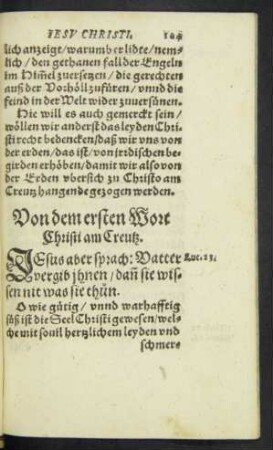 IESV CHRISTI.
lich anzeigt/warumb er lidte/nem-
lich/den gethanen fall der Engeln
im Him̃el zuersetzen/die gerechten
auß der Vorhöll zufüren/vnnd die
feind in der Welt wider zuuersünen.
Hie will es auch gemerckt sein/
wöllen wir anderst das leyden Chri-
sti recht bedencken/daß wir vns von
der erden/das ist/von irdischen be-
girden erhöben/damit wir also von
der Erden vbersich zu Christo am
Creutz hangende gezogen werden.
Von dem ersten Wort
Christi am Creutz.
IEsus aber sprach: Vatter Luc. 23.
vergib jhnen/dañ sie wis-
sen nit was sie thůn.
O wie gütig/vnnd warhafftig
süß ist die Seel Christi gewesen/wel-
che mit souil hertzlichem leyden vnd
schmer-